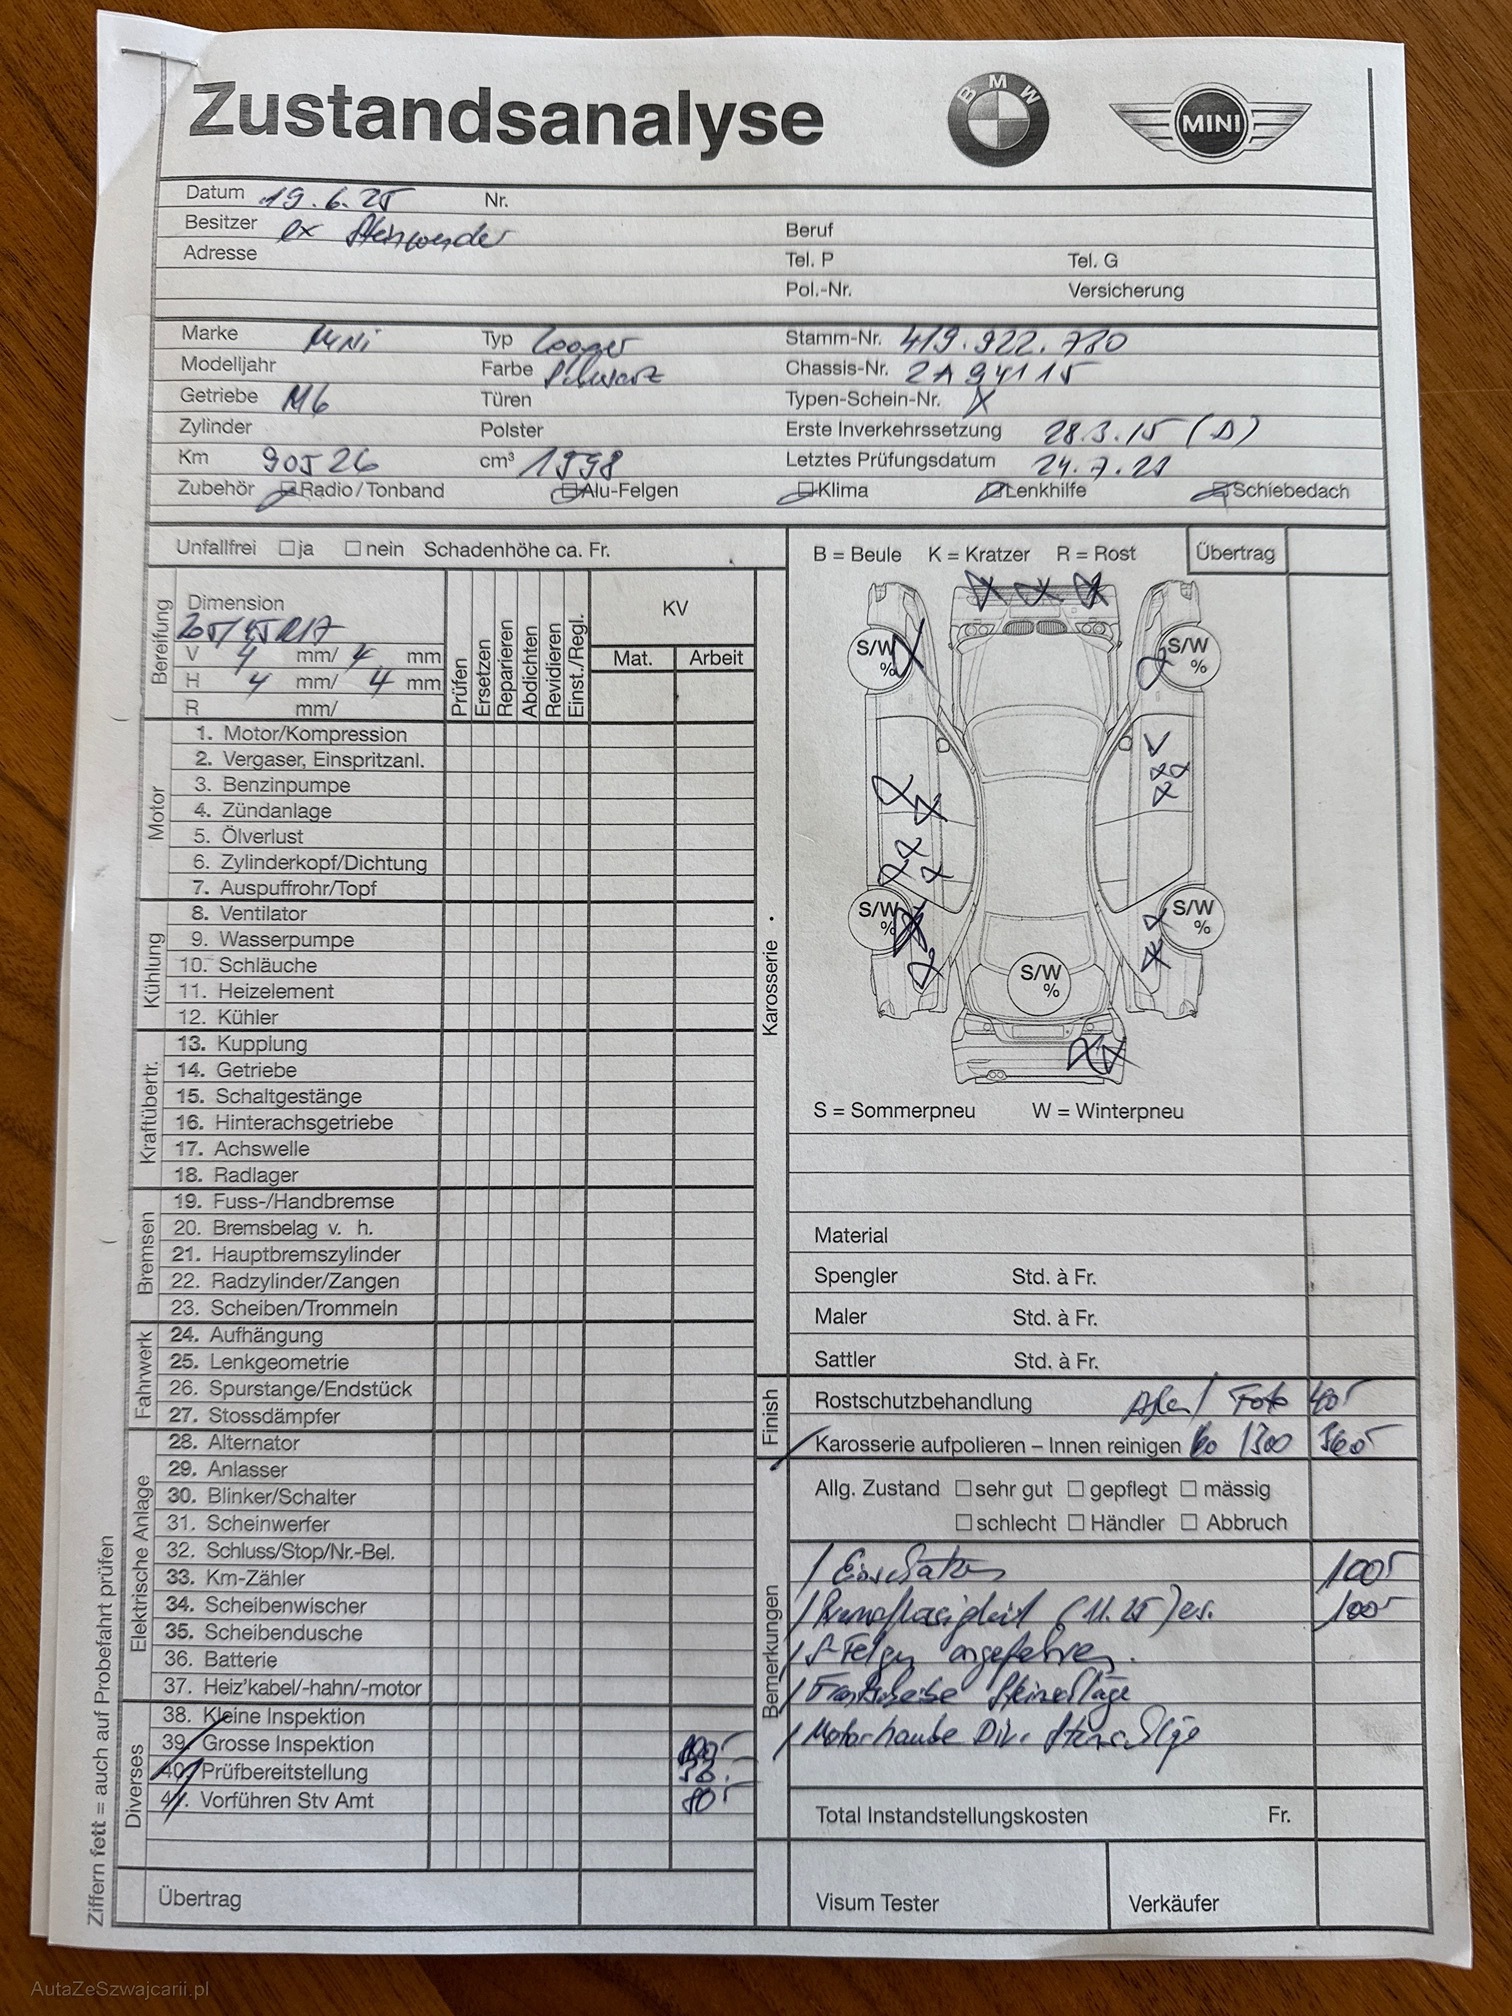 Zustandsanalyse
BMW
MINI
Datum 19.6.25 Nr.
Besitzer ex
Beruf
Adresse
Tel. P Tel. G
Pol.-Nr. Versicherung
Marke Mini Typ Cooper Stamm-Nr. 419.922.780
Modelljahr Farbe Schwarz Chassis-Nr. 2A94115
Getriebe M6 Türen Typen-Schein-Nr. X
Zylinder Polster Erste Inverkehrssetzung 28.3.15 (D)
Km 90526 cm³ 1998 Letztes Prüfungsdatum 24.7.21
Zubehör Radio/Tonband Alu-Felgen Klima Lenkhilfe Schiebedach
Unfallfrei ja nein Schadenhöhe ca. Fr.
B = Beule K = Kratzer R = Rost Übertrag
Bereifung
Dimension
205/45R17
V 4 mm/ 4 mm
H 4 mm/ 4 mm
R mm/
Prüfen
Ersetzen
Reparieren
Abdichten
Revidieren
Einst./Regl.
KV
Mat. Arbeit
Motor
1. Motor/Kompression
2. Vergaser, Einspritzanl.
3. Benzinpumpe
4. Zündanlage
5. Ölverlust
6. Zylinderkopf/Dichtung
7. Auspuffrohr/Topf
Kühlung
8. Ventilator
9. Wasserpumpe
10. Schläuche
11. Heizelement
12. Kühler
Kraftübertr.
13. Kupplung
14. Getriebe
15. Schaltgestänge
16. Hinterachsgetriebe
17. Achswelle
18. Radlager
Bremsen
19. Fuss-/Handbremse
20. Bremsbelag v. h.
21. Hauptbremszylinder
22. Radzylinder/Zangen
23. Scheiben/Trommeln
Fahrwerk
24. Aufhängung
25. Lenkgeometrie
26. Spurstange/Endstück
27. Stossdämpfer
Elektrische Anlage
28. Alternator
29. Anlasser
30. Blinker/Schalter
31. Scheinwerfer
32. Schluss/Stop/Nr.-Bel.
33. Km-Zähler
34. Scheibenwischer
35. Scheibendusche
36. Batterie
37. Heiz'kabel/-hahn/-motor
Diverses
38. Kleine Inspektion
39. Grosse Inspektion
40. Prüfbereitstellung
41. Vorführen Stv Amt 80.-
Übertrag
Ziffern fett = auch auf Probefahrt prüfen
Karosserie
S/W %
S/W %
S/W %
S/W %
S/W %
S = Sommerpneu W = Winterpneu
Material
Spengler Std. à Fr.
Maler Std. à Fr.
Sattler Std. à Fr.
Finish
Rostschutzbehandlung / Foto
Karosserie aufpolieren – Innen reinigen /300
Allg. Zustand sehr gut gepflegt mässig
schlecht Händler Abbruch
Bemerkungen
/ 100.-
/ Bremsflüssigkeit (11.25) er. 100.-
/ Felgen angefahren.
/ Frontscheibe Steinschläge
/ Motorhaube Div. Steinschläge
Total Instandstellungskosten Fr.
Visum Tester Verkäufer
AutaZeSzwajcarii.pl